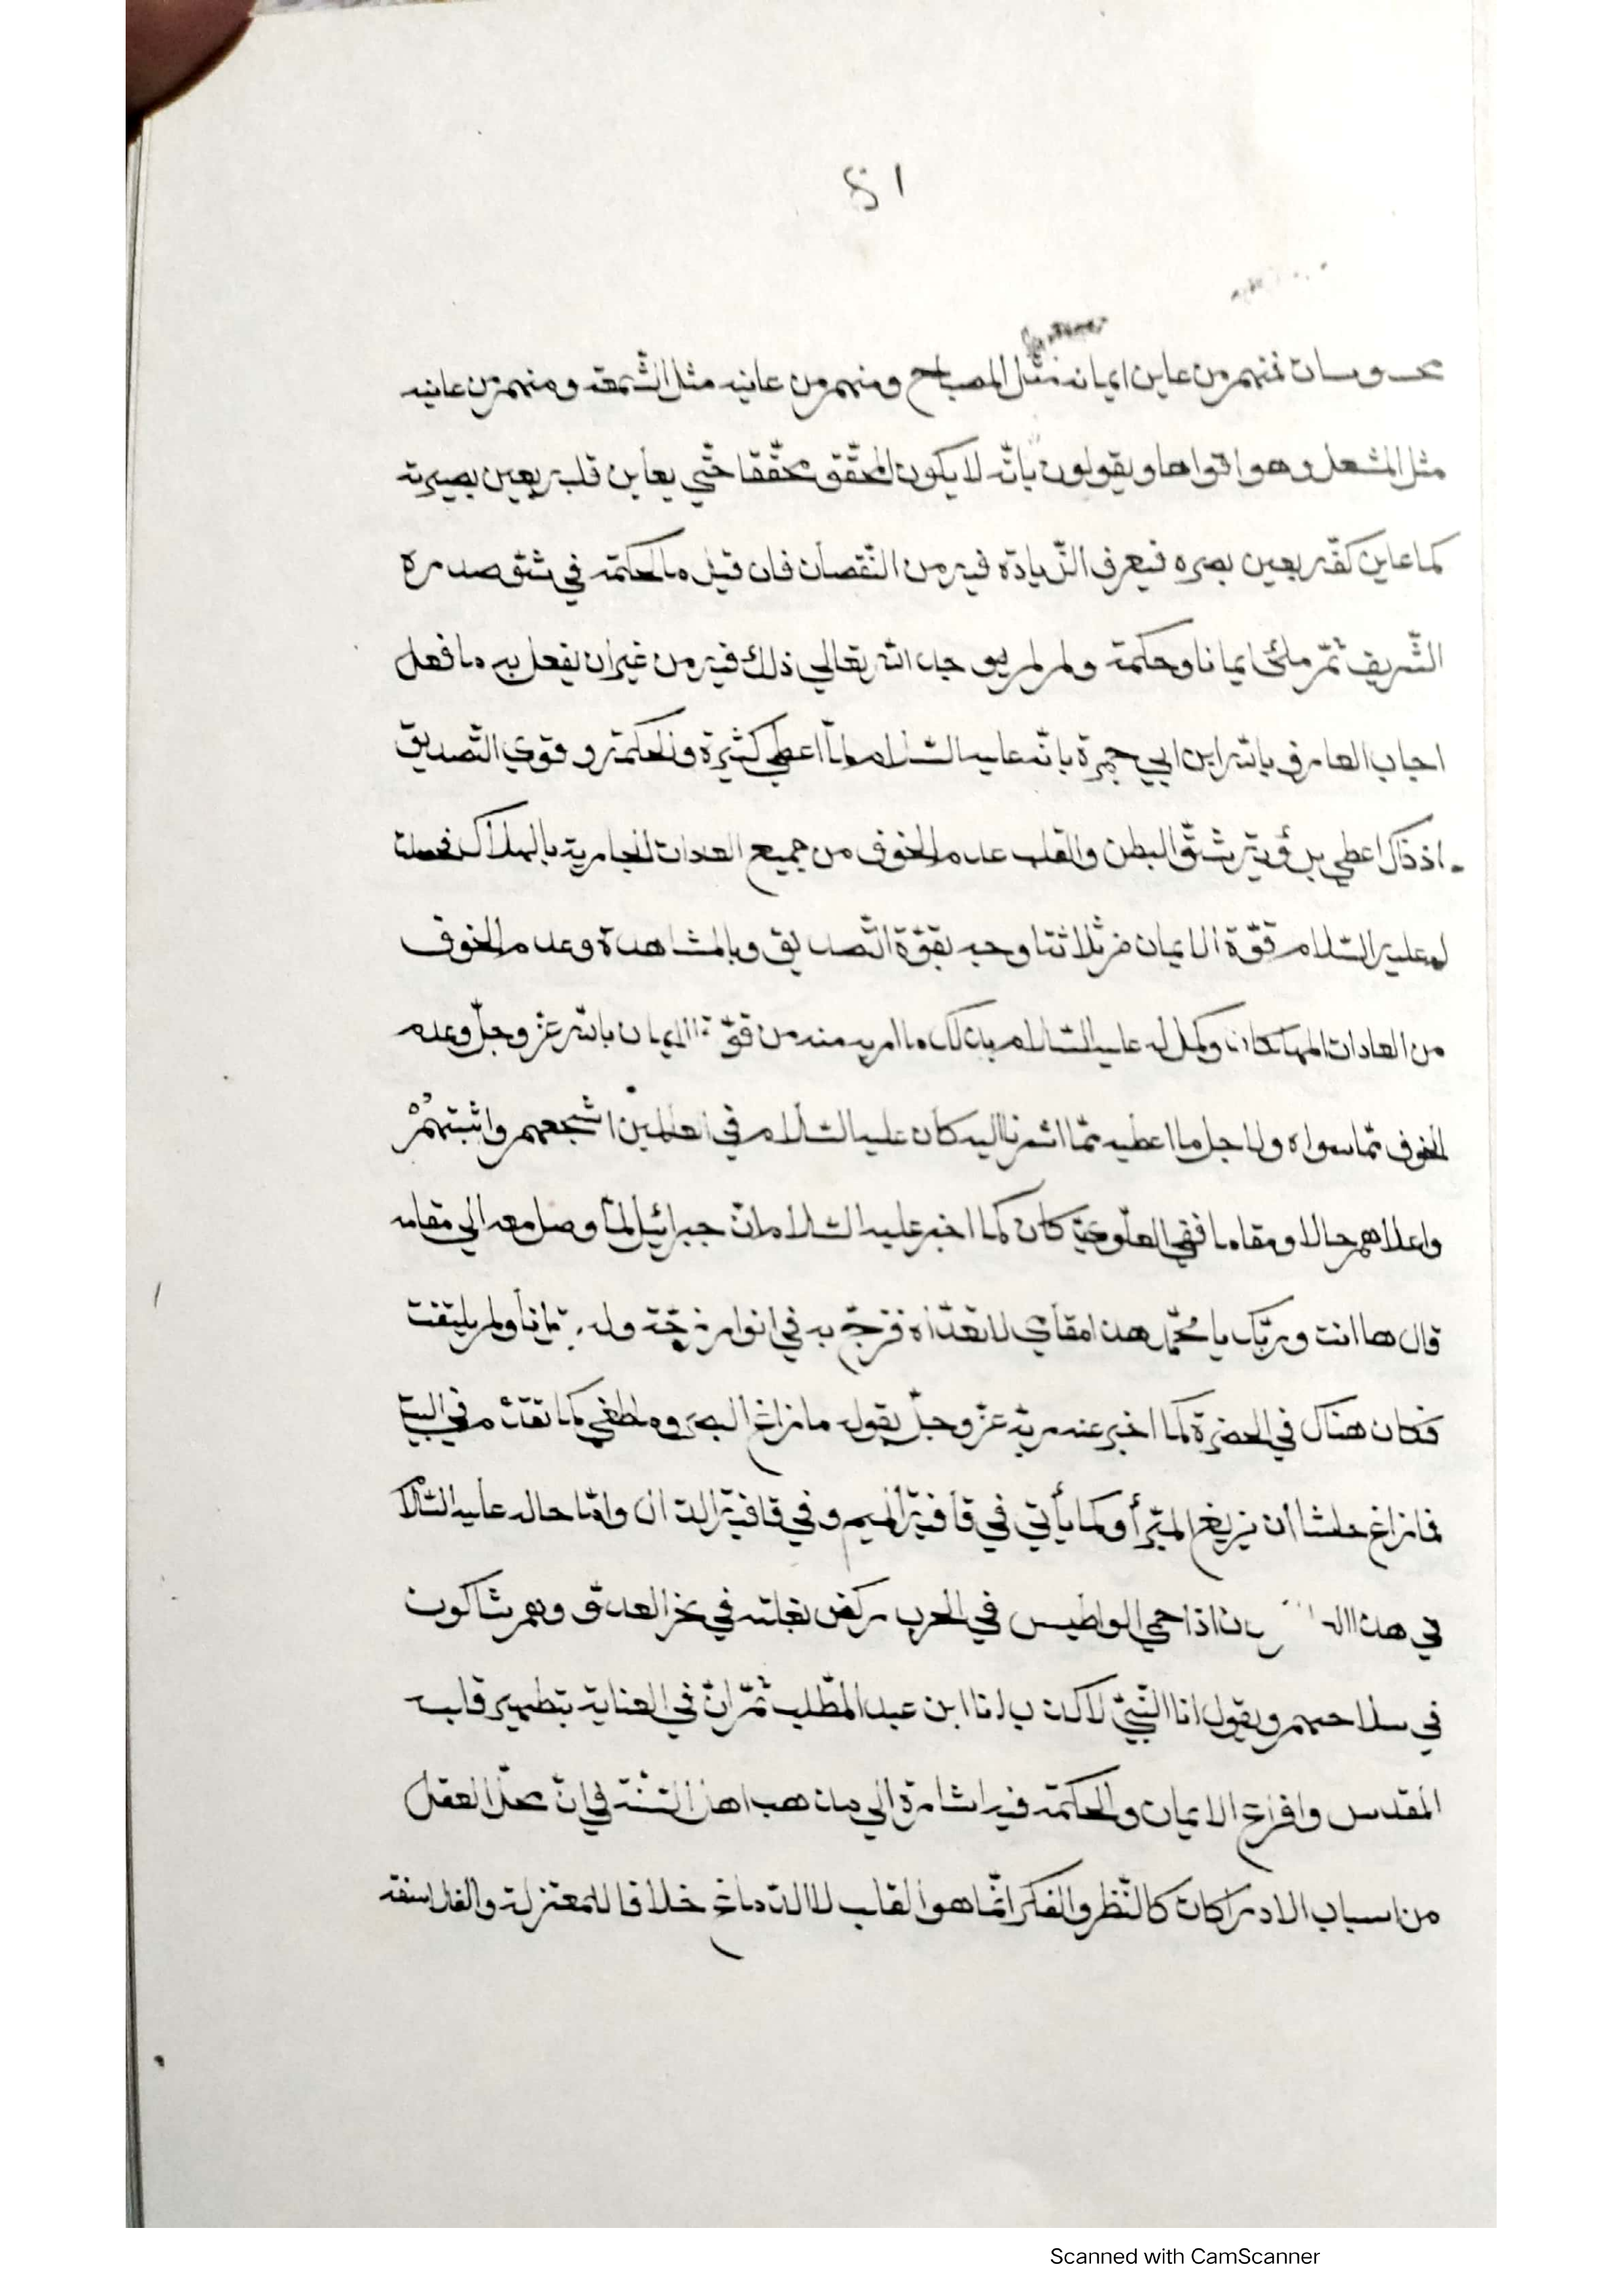 51
محسوسات فمنهم من عاين ايمانه مثل المصباح ومنهم من عاينه مثل الشّمعة ومنهم من عاينه
مثل المشعل وهو اقواها ويقولون بانّه لا يكون المحقّق محقّقا حتّي يعاين قلبه بعين بصيرته
كما عاين كفّه بعين بصره فيعرف الزّيادة فيه من النّقصان فان قيل ما الحكمة في شقّ صدره
الشّريف ثمّ ملئ ايمانا وحكمة ولم لم يوجد الله تعالي ذلك فيه من غير ان يفعل به ما فعل
اجاب العارف بالله ابن ابي جمرة بانّه عليه السّلام لمّا اعطي كثرة والحكمة و قوي التّصديق
اذ ذاك اعطي برؤية شقّ البطن والقلب عدم الخوف من جميع العادات الجارية بالهلاك فحصلت
له عليه السّلام قوّة الايمان من ثلاثة اوجه بقوّة التّصديق وبالمشاهدة وعدم الخوف
من العادات المهلكات وكمل له عليه السّلام بذلك ما اريد منه من قوّة الايمان بالله عزّ وجلّ وعدم
الخوف ممّا سواه ولاجل ما اعطيه ممّا اشرنا اليه كان عليه السّلام في العالمين اشجعهم واثبتهمْ
واعلاهم حالا ومقاما ففي العلويّ كان كما اخبر عليه السّلام انّ جبرائيل لمّا وصل معه الي مقامه
قال ها انت وربّك يا محمّد هذا مقامي لا اتعدّاه فزجّ به في انوار زجّة ولم ولم يلتفت
فكان هناك في الحضرة كما اخبر عنه ربّه عزّ وجلّ بقوله ما زاغ البصر وما طغي كما تقدّم في البيت
فما زاغ حاشا ان يزيغ المبرّأ وكما يأتي في قافية الميم وفي قافية الدال وامّا حاله عليه السّلا
في هذا اذا حمي الواطيس في الحرب ركض بغلته في نحر العدوّ وهم شاكون
في سلاحهم ويقول انا النّبيّ لا كذب انا ابن عبد المطّلب ثمّ انّ في العناية بتطهير قلبه
المقدس وافراغ الايمان والحكمة فيه اشارة الي مذهب اهل السّنّة في انّ محلّ العقل
من اسباب الادراكات كالنّظر والفكر انّما هو القلب لا الدّماغ خلافا للمعتزلة والفلاسفة
Scanned with CamScanner